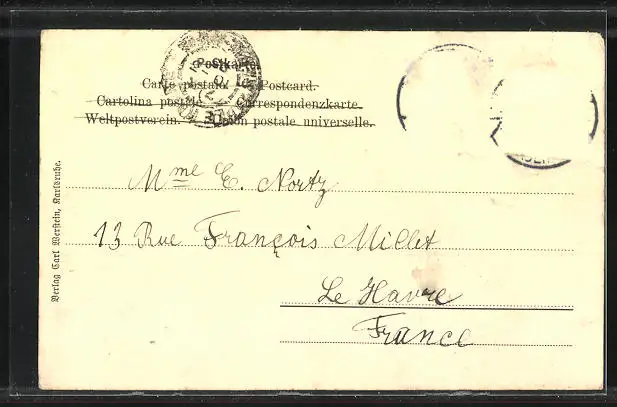 Postkarte
Carte postale Postcard.
Cartolina postale Correspondenzkarte.
Weltpostverein. Union postale universelle.
Mme C. Nortz
13 Rue François Millet
Le Havre
France
Verlag Carl Werstein, Karlsruhe.